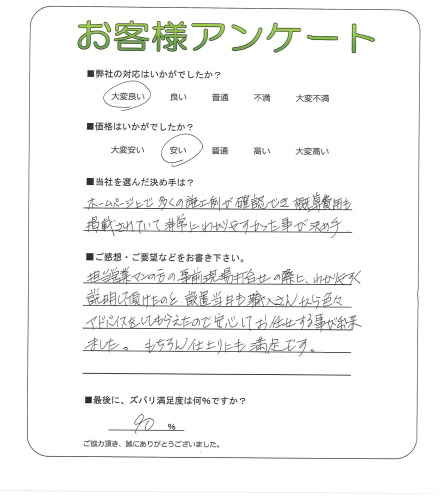 お客様アンケート
■弊社の対応はいかがでしたか？
大変良い 良い 普通 不満 大変不満
■価格はいかがでしたか？
大変安い 安い 普通 高い 大変高い
■当社を選んだ決め手は？
ホームページ上で多くの施工例が確認でき概算費用も
掲載されていて非常にわかりやすかった事が決め手.
■ご感想・ご要望などをお書き下さい。
担当営業マンの方の事前現場打合せの際に、わかりやすく
説明して頂けたのと設置当日も職人さんから色々
アドバイスをしてもらえたので安心してお任せする事が出来
ました。もちろん仕上りにも満足です。
■最後に、ズバリ満足度は何%ですか？
90 %
ご協力頂き、誠にありがとうございました。